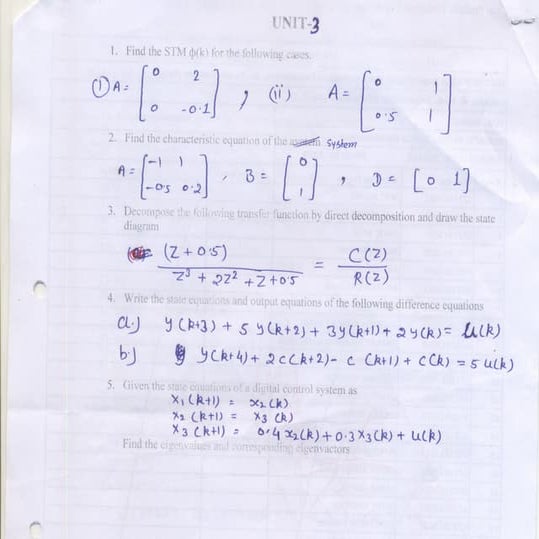 UNIT-3
1. Find the STM ϕ(k) for the following cases.
(i) A = [0 2; 0 -0.1] , (ii) A = [0 1; 0.5 1]
2. Find the characteristic equation of the system
A = [-1 1; -0.5 0.2] , B = [0; 1] , D = [0 1]
3. Decompose the following transfer function by direct decomposition and draw the state
diagram
(Z + 0.5) / Z³ + 2Z² + Z + 0.5 = C(Z) / R(Z)
4. Write the state equations and output equations of the following difference equations
a.) y(k+3) + 5y(k+2) + 3y(k+1) + 2y(k) = u(k)
b.) y(k+4) + 2c(k+2) - c(k+1) + c(k) = 5u(k)
5. Given the state equations of a digital control system as
x₁(k+1) = x₂(k)
x₂(k+1) = x₃(k)
x₃(k+1) = 0.4x₂(k) + 0.3x₃(k) + u(k)
Find the eigenvalues and corresponding eigenvactors